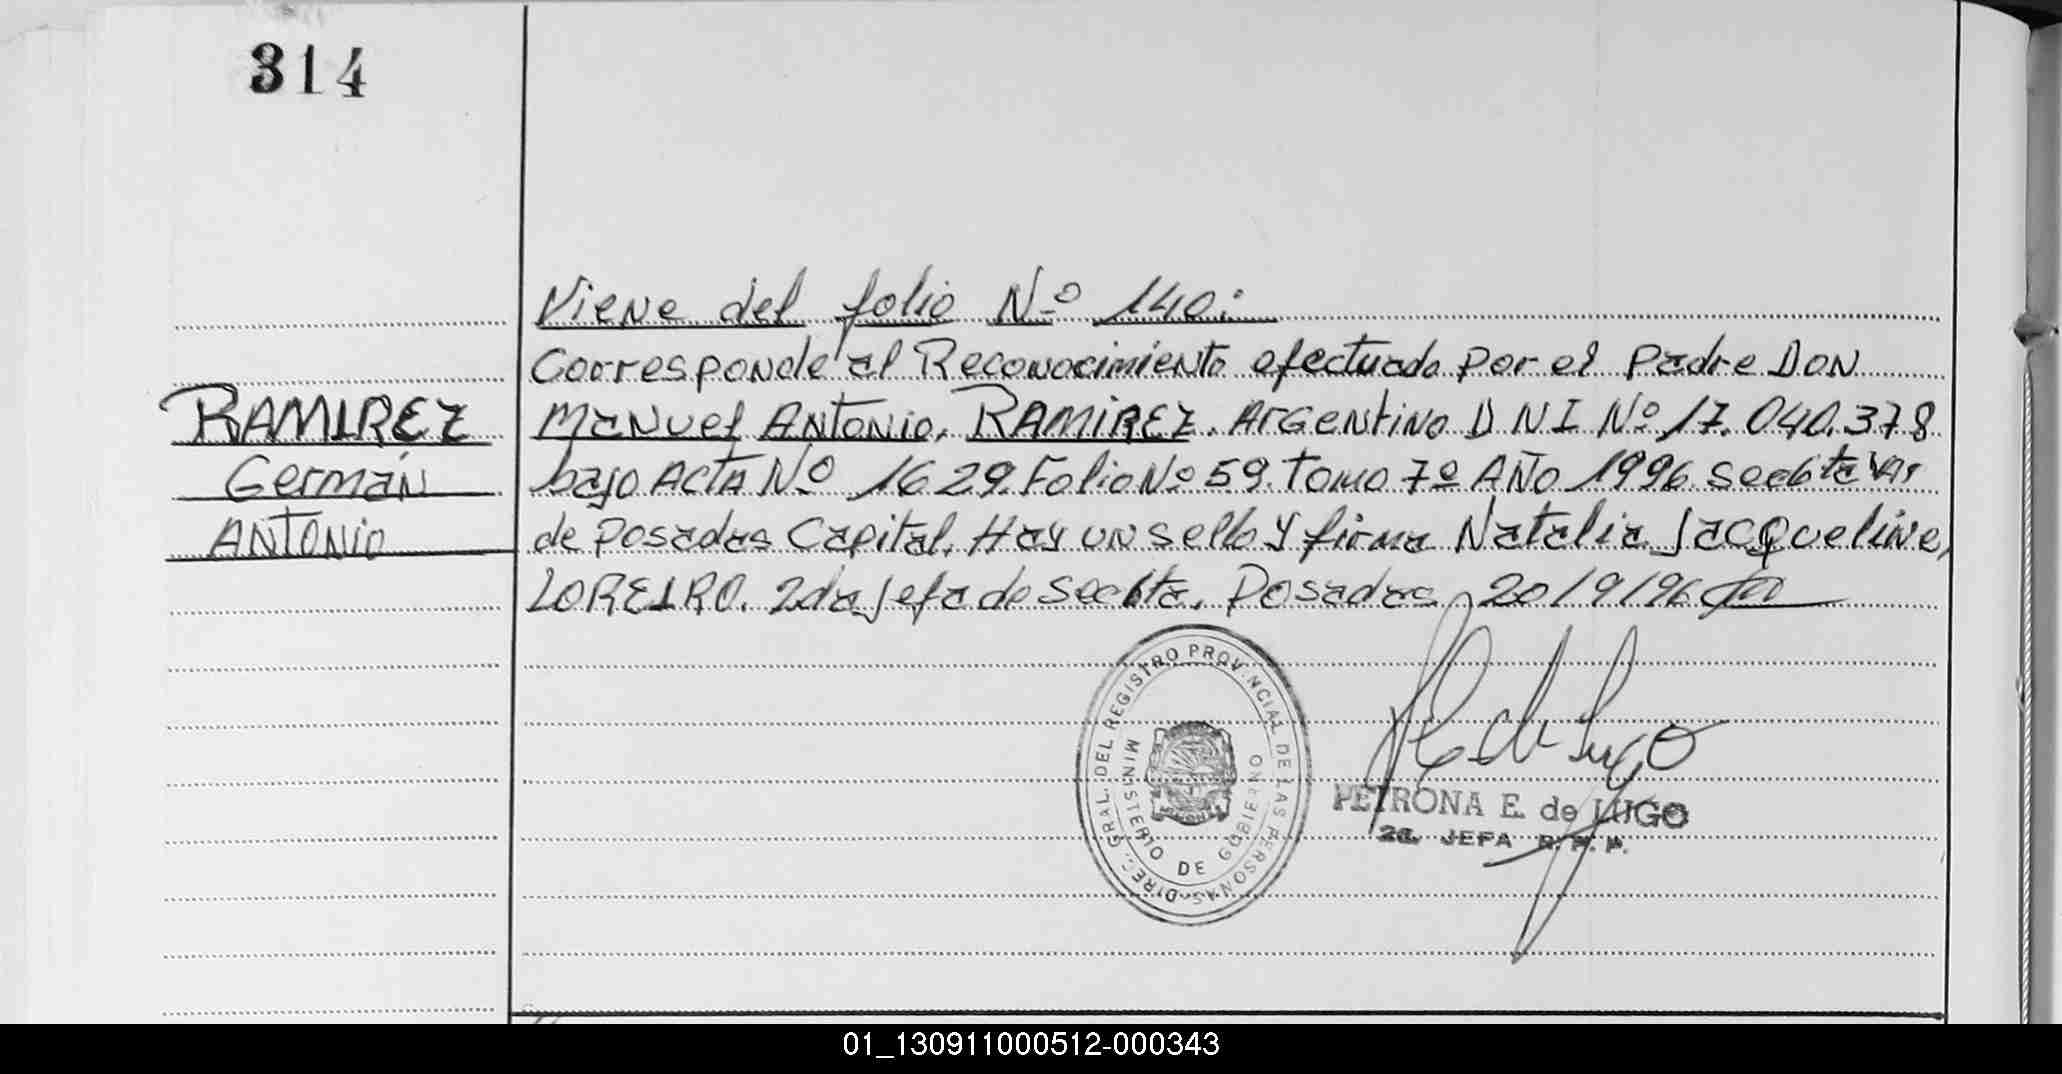 314
Viene del folio Nº 140:
Corresponde al Reconocimiento efectuado por el padre DON
RAMIREZ
Manuel Antonio, RAMIREZ. Argentino D N I Nº 17.040.378
Germán
bajo Acta Nº 1629. Folio Nº 59. Tomo 7º Año 1996.
Antonio
de Posadas Capital. Hay un sello y firma Natalia Jacqueline,
LOREIRO. 2da Jefa de Posadas 20/9/96
DIREC. GRAL. DEL REGISTRO PROVINCIAL DE LAS PERSONAS
MINISTERIO DE GOBIERNO
PETRONA E. de LUGO
2a. JEFA R. P. P.
01_130911000512-000343